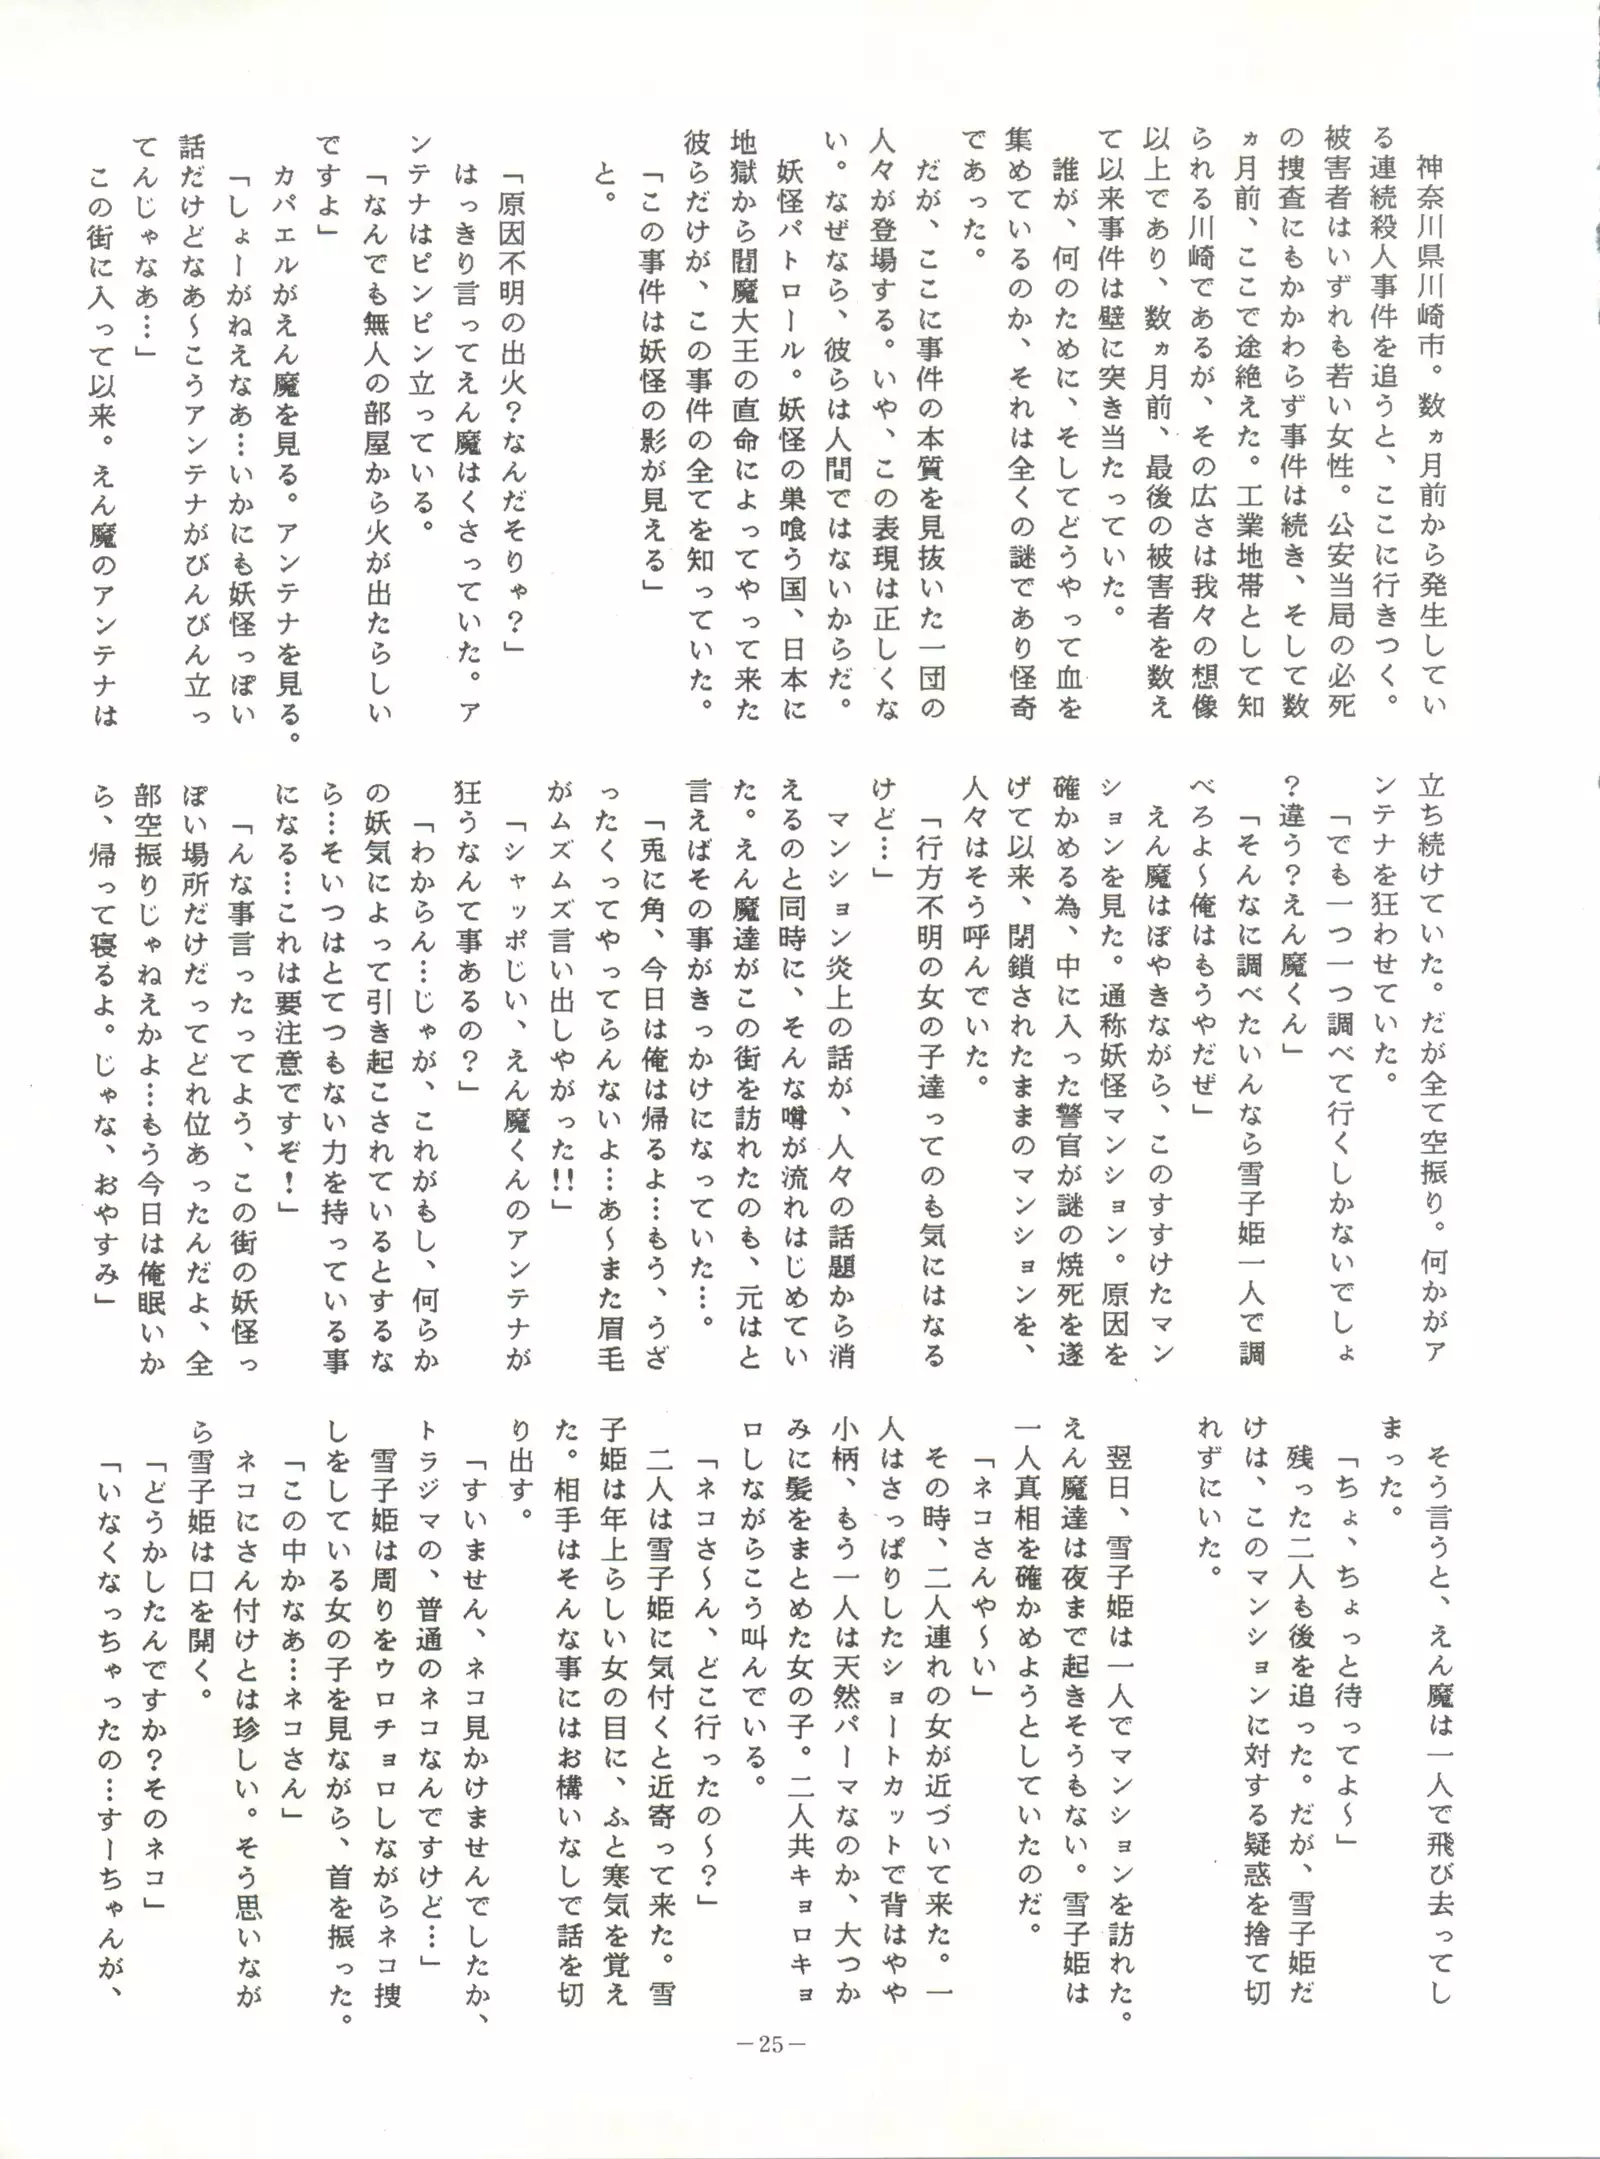 神奈川県川崎市。数ヵ月前から発生してい
る連続殺人事件を追うと、ここに行きつく。
被害者はいずれも若い女性。公安当局の必死
の捜査にもかかわらず事件は続き、そして数
ヵ月前、ここで途絶えた。工業地帯として知
られる川崎であるが、その広さは我々の想像
以上であり、数ヵ月前、最後の被害者を数え
て以来事件は壁に突き当たっていた。
誰が、何のために、そしてどうやって血を
集めているのか、それは全くの謎であり怪奇
であった。
だが、ここに事件の本質を見抜いた一団の
人々が登場する。いや、この表現は正しくな
い。なぜなら、彼らは人間ではないからだ。
妖怪パトロール。妖怪の巣喰う国、日本に
地獄から閻魔大王の直命によってやって来た
彼らだけが、この事件の全てを知っていた。
「この事件は妖怪の影が見える」
と。
「原因不明の出火？なんだそりゃ？」
はっきり言ってえん魔はくさっていた。ア
ンテナはピンピン立っている。
「なんでも無人の部屋から火が出たらしい
ですよ」
カパエルがえん魔を見る。アンテナを見る。
「しょーがねえなあ…いかにも妖怪っぽい
話だけどなあ〜こうアンテナがびんびん立っ
てんじゃなあ…」
この街に入って以来。えん魔のアンテナは
立ち続けていた。だが全て空振り。何かがア
ンテナを狂わせていた。
「でも一つ一つ調べて行くしかないでしょ
？違う？えん魔くん」
「そんなに調べたいんなら雪子姫一人で調
べろよ〜俺はもうやだぜ」
えん魔はぼやきながら、このすすけたマン
ションを見た。通称妖怪マンション。原因を
確かめる為、中に入った警官が謎の焼死を遂
げて以来、閉鎖されたままのマンションを、
人々はそう呼んでいた。
「行方不明の女の子達ってのも気にはなる
けど…」
マンション炎上の話が、人々の話題から消
えるのと同時に、そんな噂が流れはじめてい
た。えん魔達がこの街を訪れたのも、元はと
言えばその事がきっかけになっていた…。
「兎に角、今日は俺は帰るよ…もう、うざ
ったくってやってらんないよ…あ〜また眉毛
がムズムズ言い出しやがった!!」
「シャッポじい、えん魔くんのアンテナが
狂うなんて事あるの？」
「わからん…じゃが、これがもし、何らか
の妖気によって引き起こされているとするな
ら…そいつはとてつもない力を持っている事
になる…これは要注意ですぞ！」
「んな事言ったってよう、この街の妖怪っ
ぽい場所だけだってどれ位あったんだよ、全
部空振りじゃねえかよ…もう今日は俺眠いか
ら、帰って寝るよ。じゃな、おやすみ」
そう言うと、えん魔は一人で飛び去ってし
まった。
「ちょ、ちょっと待ってよ〜」
残った二人も後を追った。だが、雪子姫だ
けは、このマンションに対する疑惑を捨て切
れずにいた。
翌日、雪子姫は一人でマンションを訪れた。
えん魔達は夜まで起きそうもない。雪子姫は
一人真相を確かめようとしていたのだ。
「ネコさんや〜い」
その時、二人連れの女が近づいて来た。一
人はさっぱりしたショートカットで背はやや
小柄、もう一人は天然パーマなのか、大つか
みに髪をまとめた女の子。二人共キョロキョ
ロしながらこう叫んでいる。
「ネコさ〜ん、どこ行ったの〜？」
二人は雪子姫に気付くと近寄って来た。雪
子姫は年上らしい女の目に、ふと寒気を覚え
た。相手はそんな事にはお構いなしで話を切
り出す。
「すいません、ネコ見かけませんでしたか、
トラジマの、普通のネコなんですけど…」
雪子姫は周りをウロチョロしながらネコ捜
しをしている女の子を見ながら、首を振った。
「この中かなあ…ネコさん」
ネコにさん付けとは珍しい。そう思いなが
ら雪子姫は口を開く。
「どうかしたんですか？そのネコ」
「いなくなっちゃったの…すーちゃんが、
－25－